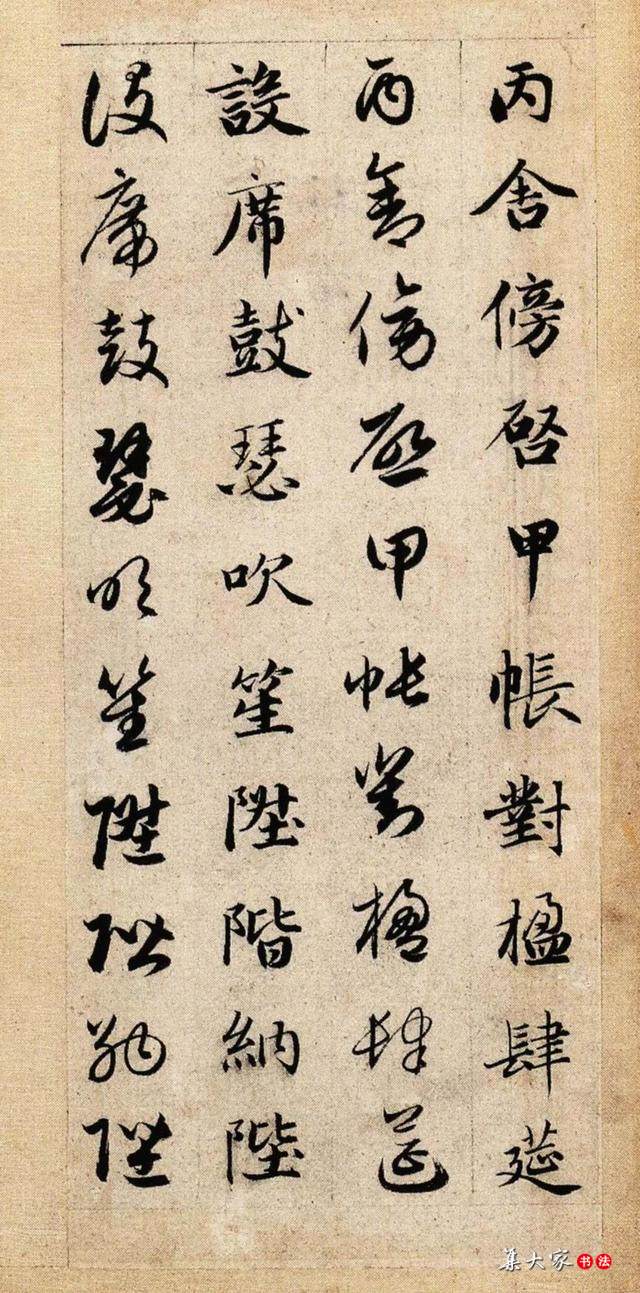 丙舍傍啓甲帳對楹肆莚
丙舍傍啓甲帳對楹肆莚
設席鼓瑟吹笙陞階納陛
設席鼓瑟吹笙陞階納陛
集大家书法